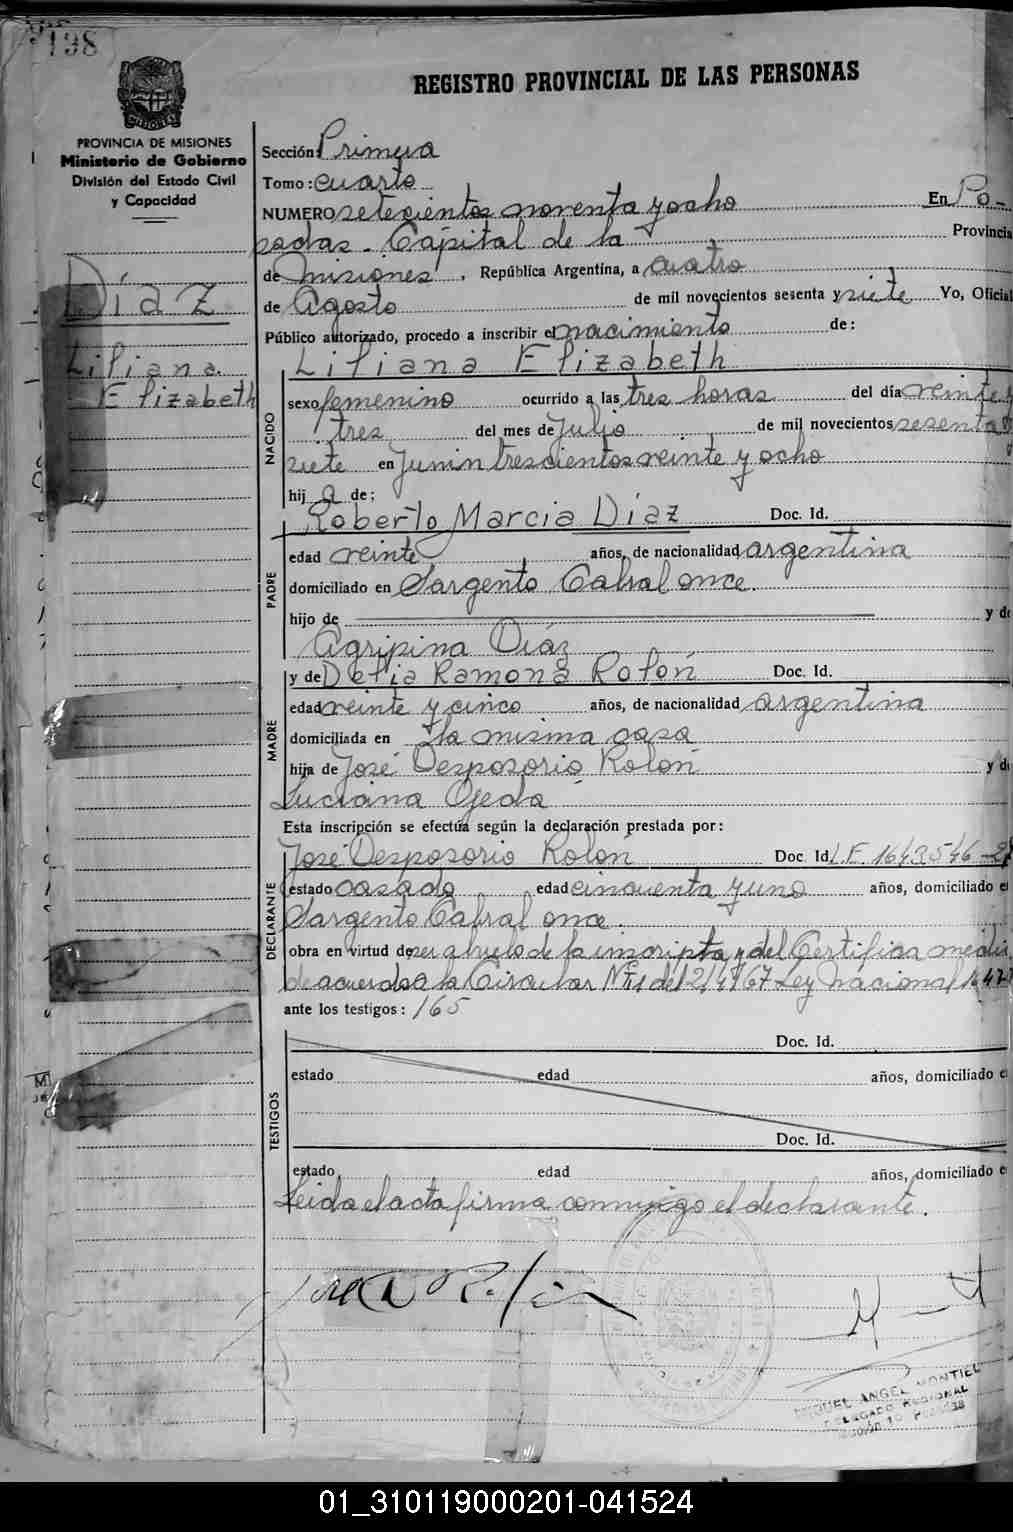 198
REGISTRO PROVINCIAL DE LAS PERSONAS
MISIONES
PROVINCIA DE MISIONES
Ministerio de Gobierno
División del Estado Civil
y Capacidad
Díaz
Liliana
Elizabeth
Sección: Primera
Tomo: cuarto
NUMERO setecientos noventa y ocho En Po-
sadas - Capital de la Provincia
de Misiones, República Argentina, a cuatro
de Agosto de mil novecientos sesenta y siete Yo, Oficial
Público autorizado, procedo a inscribir el nacimiento de:
NACIDO
Liliana Elizabeth
sexo femenino ocurrido a las tres horas del día veinte y
tres del mes de Julio de mil novecientos sesenta y
siete en Junin trescientos veinte y ocho
hij a de:
PADRE
Roberto Marcia Diaz Doc. Id.
edad veinte años, de nacionalidad argentina
domiciliado en Sargento Cabral once.
hijo de y de
Agripina Díaz
MADRE
y de Delia Ramona Rolón Doc. Id.
edad veinte y cinco años, de nacionalidad argentina
domiciliada en la misma casa
hija de José Desposorio Rolón y de
Luciana Ojeda
Esta inscripción se efectúa según la declaración prestada por:
DECLARANTE
José Desposorio Rolón Doc Id. L.E. 1643546
estado casado edad cincuenta y uno años, domiciliado e
Sargento Cabral once.
obra en virtud de ser abuelo de la inscripta y del Certifica medic
de acuerdo a la Circular Nº 11 del 12/4/67 Ley Nacional
ante los testigos: 165
TESTIGOS
Doc. Id.
estado edad años, domiciliado e
Doc. Id.
estado edad años, domiciliado e
Leida el acta firma conmigo el declarante.
MIGUEL ANGEL MONTIEL
DELEGADO REGIONAL
01_310119000201-041524